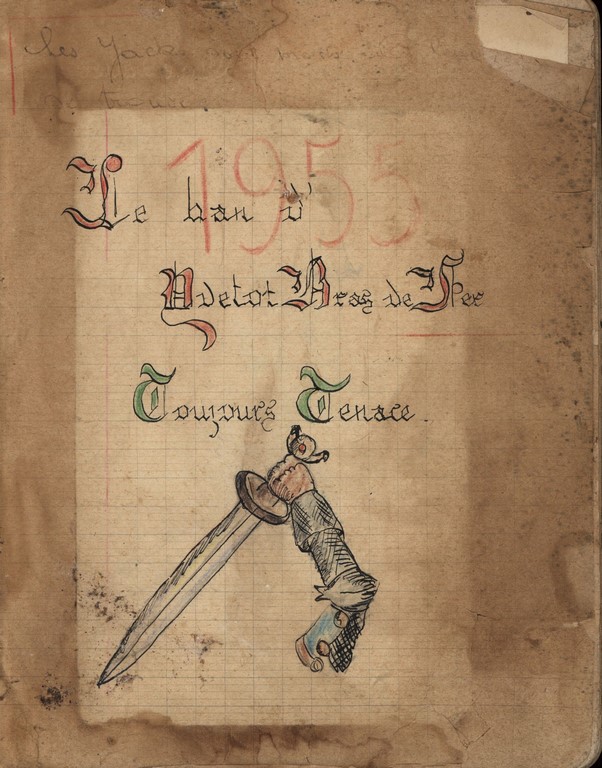 Les Jack
1955
Le ban d'
Ydetot Bras de Fer
Toujours Tenace.